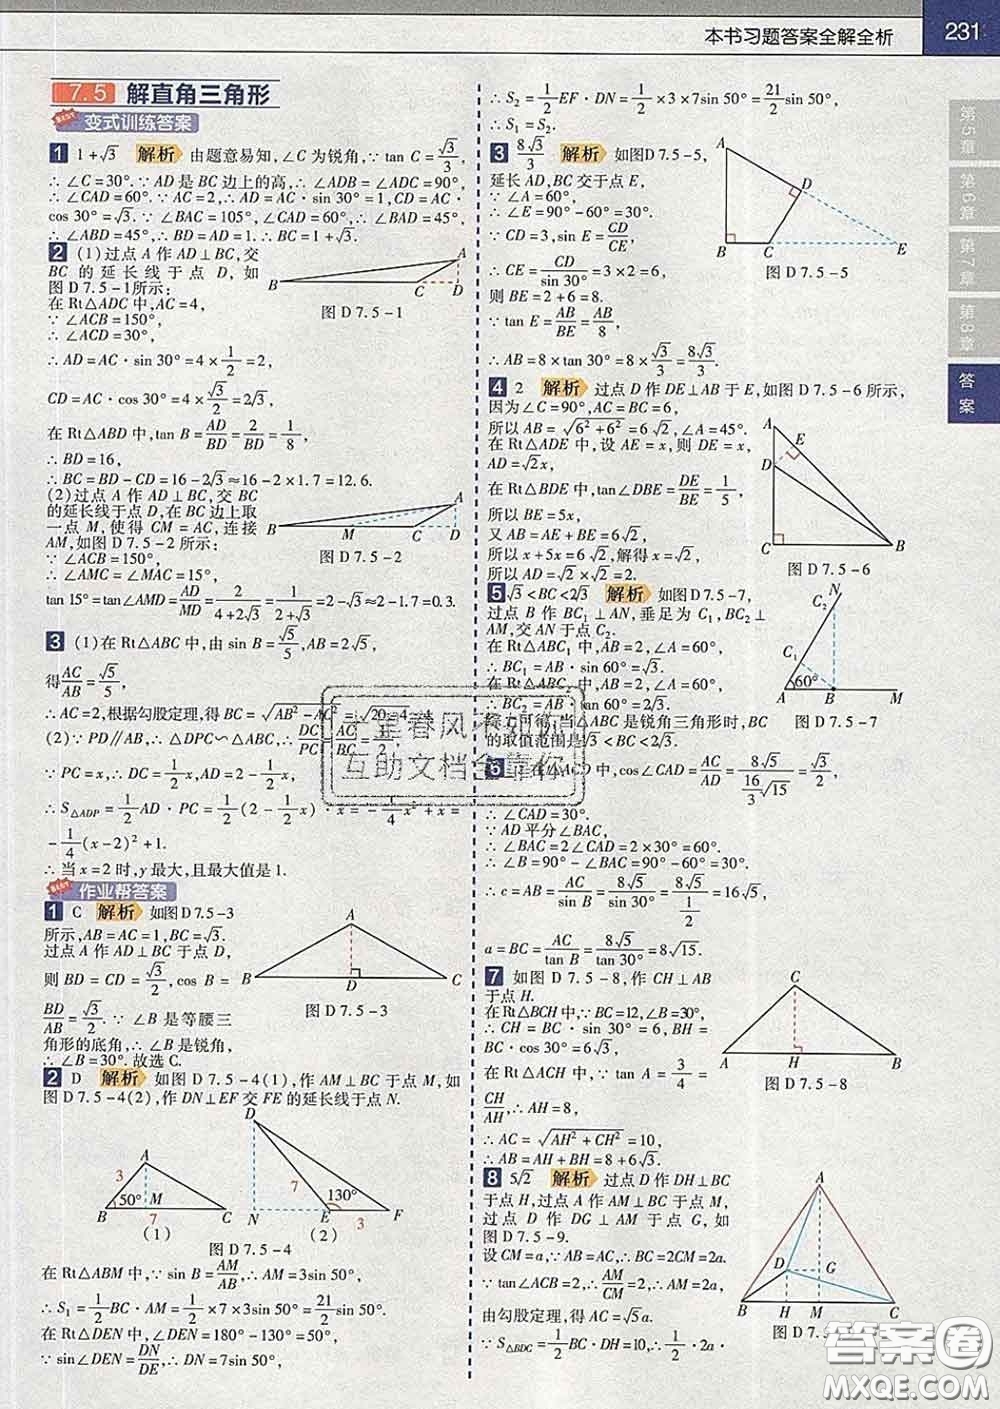 本书习题答案全解全析
231
7.5 解直角三角形
变式训练答案
1 1+√3 解析 由题意易知,∠C 为锐角,∵ tan C=√3/3,
∴ ∠C=30°.∵ AD 是 BC 边上的高,∴ ∠ADB=∠ADC=90°,
∴ ∠CAD=60°.∵ AC=2,∴ AD=AC·sin 30°=1,CD=AC·
cos 30°=√3.∵ ∠BAC=105°,∠CAD=60°,∴ ∠BAD=45°,
∴ ∠ABD=45°,∴ BD=AD=1.∴ BC=1+√3.
2 (1)过点 A 作 AD⊥BC,交
BC 的延长线于点 D,如
图 D 7.5-1所示:
在 Rt△ADC 中,AC=4,
∵ ∠ACB=150°,
∴ ∠ACD=30°,
∴ AD=AC·sin 30°=4×1/2=2,
CD=AC·cos 30°=4×√3/2=2√3,
在 Rt△ABD 中,tan B=AD/BD=2/BD=1/8,
∴ BD=16,
∴ BC=BD-CD=16-2√3≈16-2×1.7=12.6.
(2)过点 A 作 AD⊥BC,交 BC
的延长线于点 D,在 BC 上取
一点 M,使得 CM=AC,连接
AM,如图 D 7.5-2 所示:
∵ ∠ACB=150°,
∴ ∠AMC=∠MAC=15°,
tan 15°=tan∠AMD=AD/MD=2/(4+2√3)=1/(2+√3)=2-√3≈2-1.7=0.3.
图 D 7.5-1
图 D 7.5-2
3 (1)在 Rt△ABC 中,由 sin B=√5/5,AB=2√5,
得AC/AB=√5/5,
∴ AC=2,根据勾股定理,得 BC=
(2)∵ PD∥AB,∴ △DPC∽△ABC,∴ DC/PC=
∵ PC=x,∴ DC=1/2x,AD=2-1/2x,
∴ S△ADP=1/2AD·PC=1/2(2-1/2x)·x=-1/4x²+x=
-1/4(x-2)²+1.
∴ 当 x=2 时,y 最大,且最大值是 1.
作业帮答案
1 C 解析 如图 D 7.5-3
所示,AB=AC=1,BC=√3.
过点 A 作 AD⊥BC 于点 D,
则 BD=CD=√3/2,cos B=
BD/AB=√3/2.∵ ∠B 是等腰三
角形的底角,∴ ∠B 是锐角,
∴ ∠B=30°.故选C.
图 D 7.5-3
2 D 解析 如图 D 7.5-4(1),作 AM⊥BC 于点 M,如
图 D 7.5-4(2),作 DN⊥EF 交 FE 的延长线于点 N.
3
50°
7
(1)
7
130°
3
(2)
图 D 7.5-4
在 Rt△ABM 中,∵ sin B=AM/AB,
∴ S₁=1/2BC·AM=1/2×7×3sin 50°=21/2sin 50°.
在 Rt△DEN 中,∠DEN=180°-130°=50°,
∵ sin∠DEN=DN/DE,∴ DN=7sin 50°,
∴ S₂=1/2EF·DN=1/2×3×7sin 50°=21/2sin 50°,
∴ S₁=S₂.
3 8√3/3 解析 如图D 7.5-5,
延长 AD,BC 交于点 E,
∵ ∠A=60°,
∴ ∠E=90°-60°=30°.
∵ CD=3,sin E=CD/CE,
∴ CE=CD/sin 30°=3×2=6,
则 BE=2+6=8.
∵ tan E=AB/BE=AB/8,
∴ AB=8×tan 30°=8×√3/3=8√3/3.
图 D 7.5-5
4 2 解析 过点 D 作 DE⊥AB 于 E,如图 D 7.5-6 所示,
因为∠C=90°,AC=BC=6,
所以 AB=√(6²+6²)=6√2,∠A=45°.
在 Rt△ADE 中,设 AE=x,则 DE=x,
AD=√2x,
在 Rt△BDE 中,tan∠DBE=DE/BE=1/5,
所以 BE=5x,
又 AB=AE+BE=6√2,
所以 x+5x=6√2,解得 x=√2,
所以 AD=√2×√2=2.
图 D 7.5-6
5 √3<BC<2√3 解析 如图 D 7.5-7,
过点 B 作 BC₁⊥AN,垂足为 C₁,BC₂⊥
AM,交 AN 于点 C₂.
在 Rt△ABC₁ 中,AB=2,∠A=60°,
∴ BC₁=AB·sin 60°=√3.
在 Rt△ABC₂ 中,AB=2,∠A=60°,
∴ BC₂=AB·tan 60°=2√3.
当△ABC 是锐角三角形时,BC
的取值范围是√3<BC<2√3.
60°
图 D 7.5-7
6 在△ACD 中,cos∠CAD=AC/AD=8√5/(16/3√15)
∴ ∠CAD=30°.
∵ AD 平分∠BAC,
∴ ∠BAC=2∠CAD=2×30°=60°,
∴ ∠B=90°-∠BAC=90°-60°=30°,
∴ c=AB=AC/sin B=8√5/sin 30°=8√5/(1/2)=16√5,
a=BC=AC/tan B=8√5/tan 30°=8√15.
7 如图 D 7.5-8,作 CH⊥AB
于点 H.
在 Rt△BCH 中,∵ BC=12,∠B=30°,
∴ CH=BC·sin 30°=6,BH=
BC·cos 30°=6√3,
在 Rt△ACH 中,∵ tan A=3/4=
CH/AH,∴ AH=8,
∴ AC=√(AH²+CH²)=10,
∴ AB=AH+BH=8+6√3.
图 D 7.5-8
8 5√2 解析 过点 D 作 DH⊥BC
于点 H,过点 A 作 AM⊥BC 于点 M,
过点 D 作 DG⊥AM 于点 G,如
图 D 7.5-9.
设 CM=a,∵ AB=AC,∴ BC=2CM=2a.
∵ tan∠ACB=2,∴ AM/CM=2,∴ AM=2a,
由勾股定理,得 AC=√5a.
∵ S△BDC=1/2BC·DH=10,∴ 1/2·2a·
图 D 7.5
第5章
第6章
第7章
第8章
答案
春风不如你
互助文档全靠你
答案圈
MXQE.COM